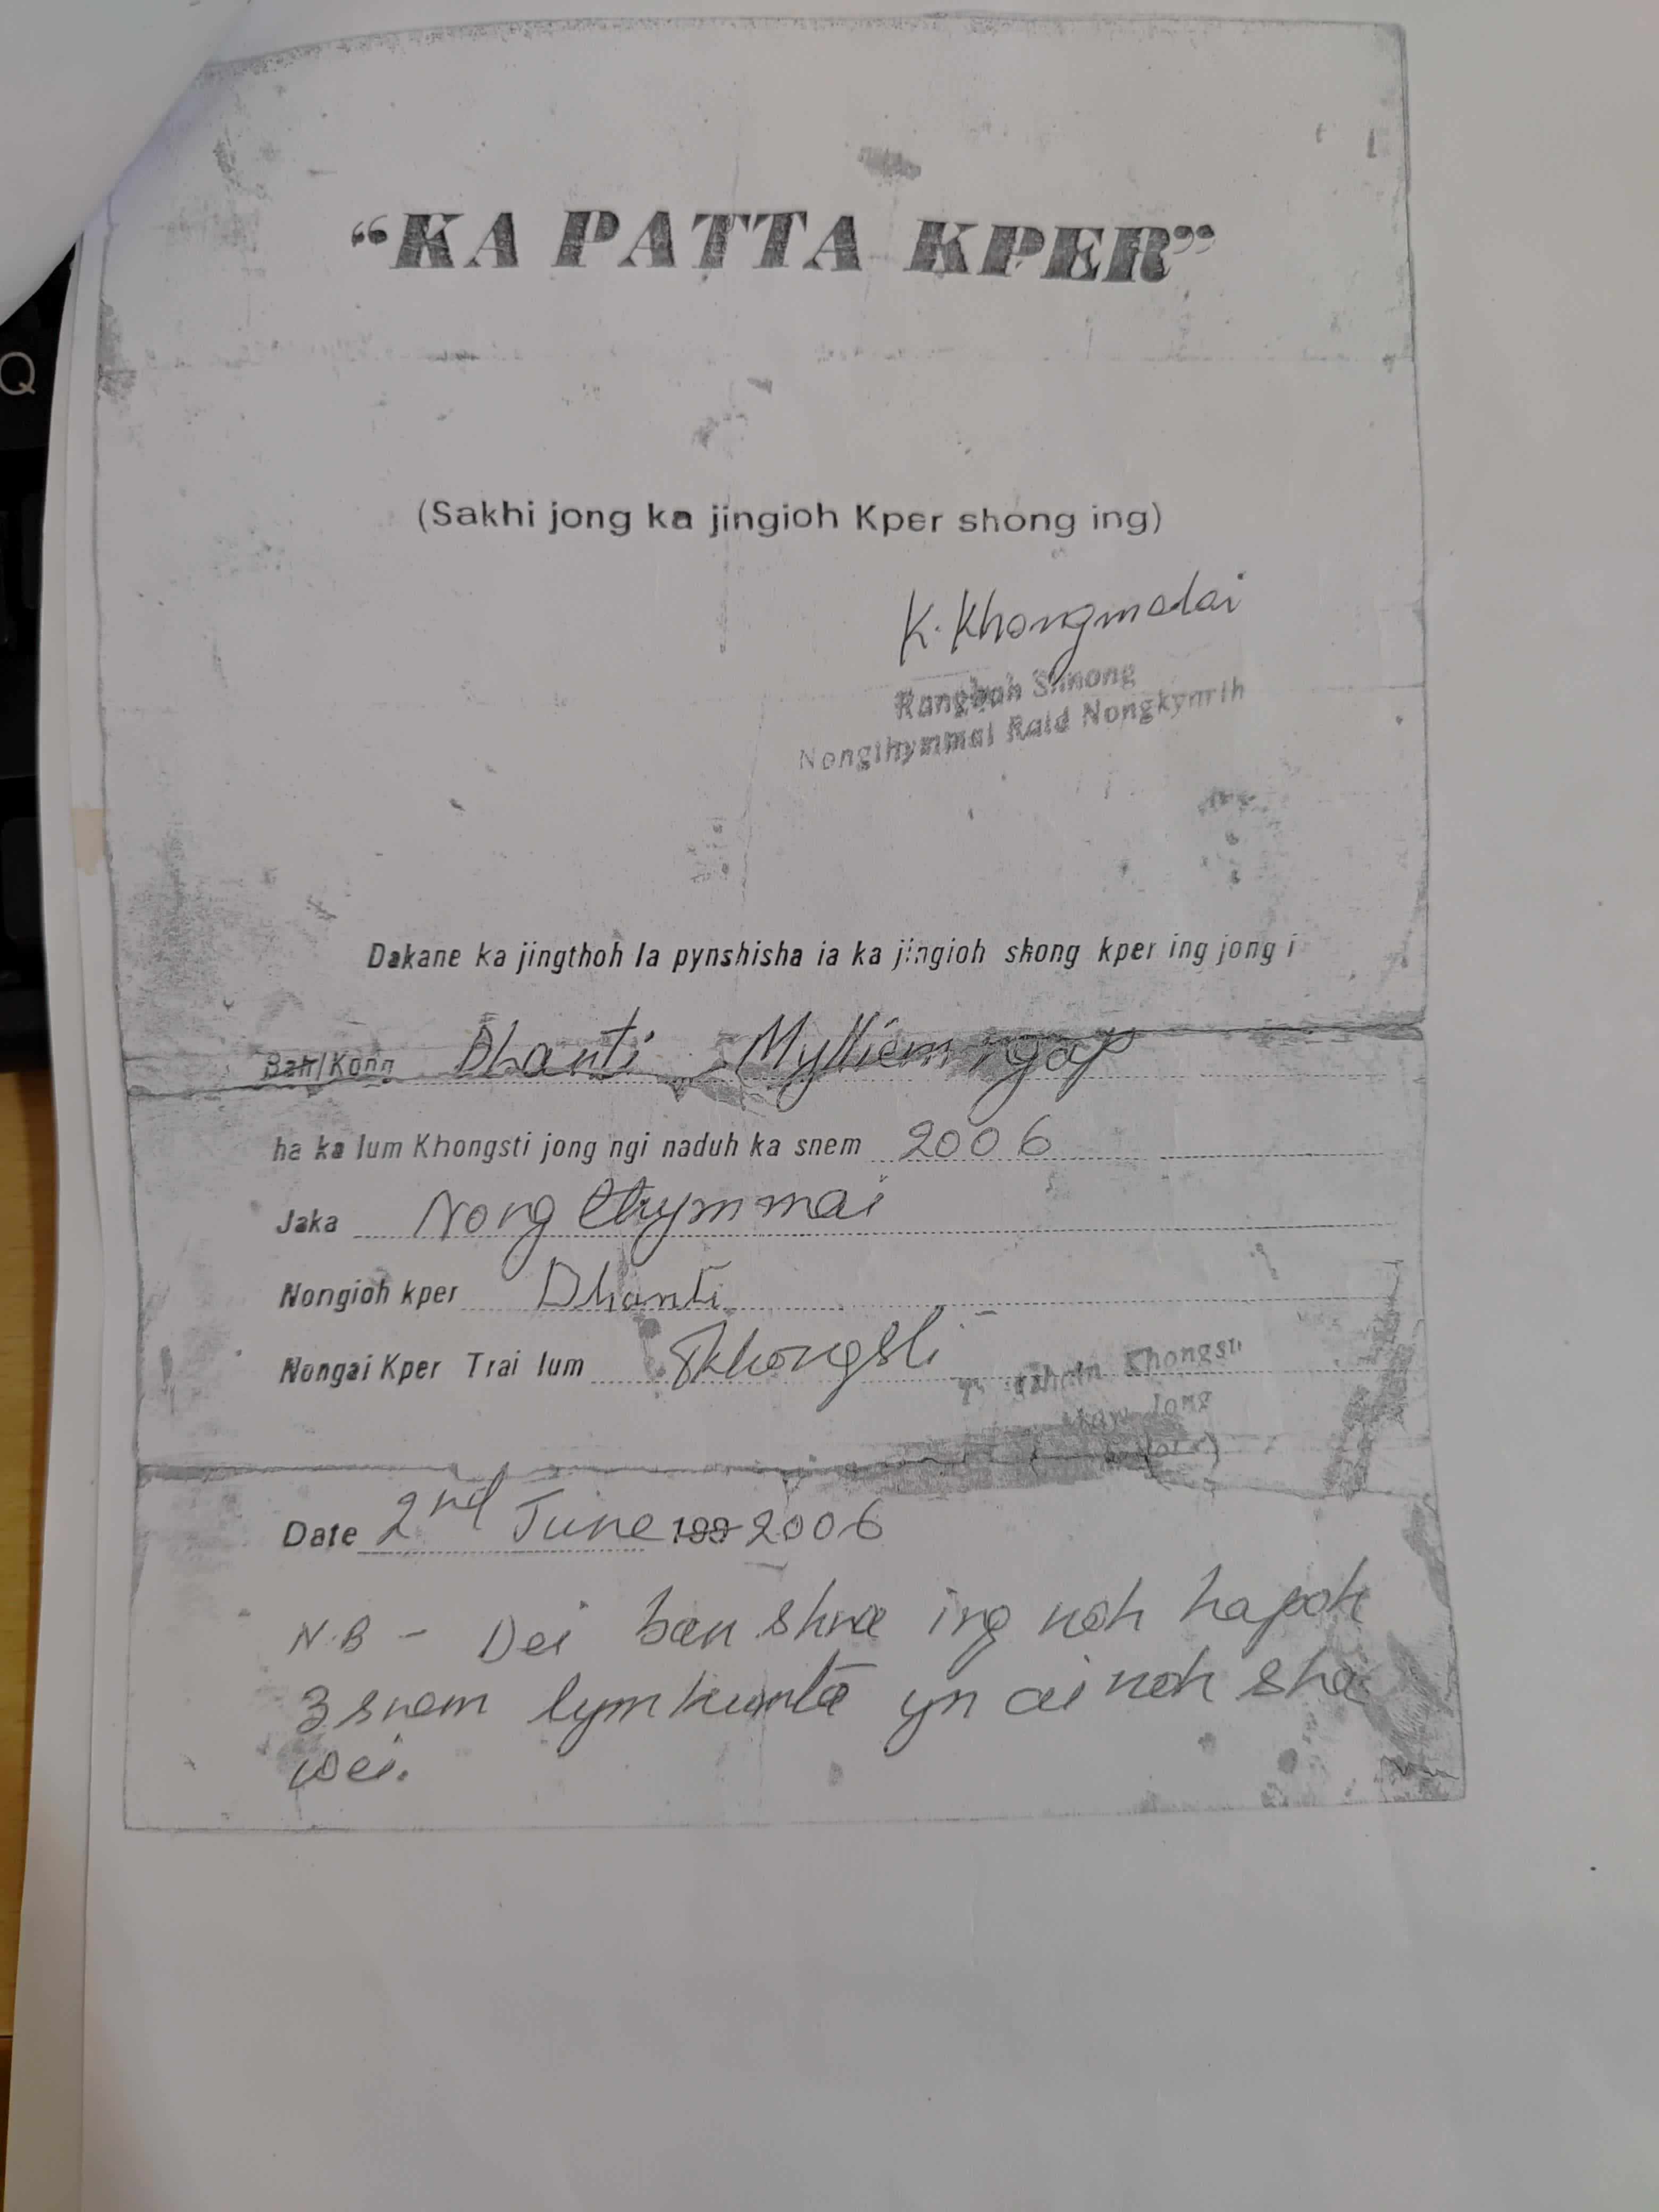 Q
“KA PATTA KPER”
(Sakhi jong ka jingioh Kper shong ing)
K. Khongmalai
Rangbah Shnong
Nongthymmai Raid Nongkynrih
Dakane ka jingthoh la pynshisha ia ka jingioh shong kper ing jong i
Bah/Kong Dhanti Mylliemngap
ha ka lum Khongsti jong ngi naduh ka snem 2006
Jaka Nongthymmai
Nongioh kper Dhanti
Nongai Kper Trai lum Khongsti
Khongsti
Jong
Date 2nd June 199 2006
N.B - Dei ban shna ing noh hapoh
3 snem lymkumta yn ai noh sha
wei.